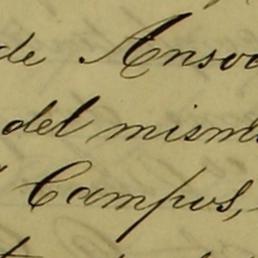 de Anso
del mism
Campos,